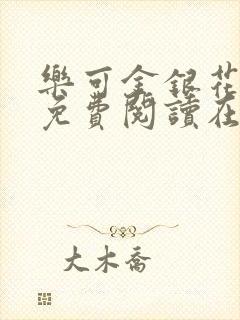 樂可金銀花
免費閱讀在
大木喬